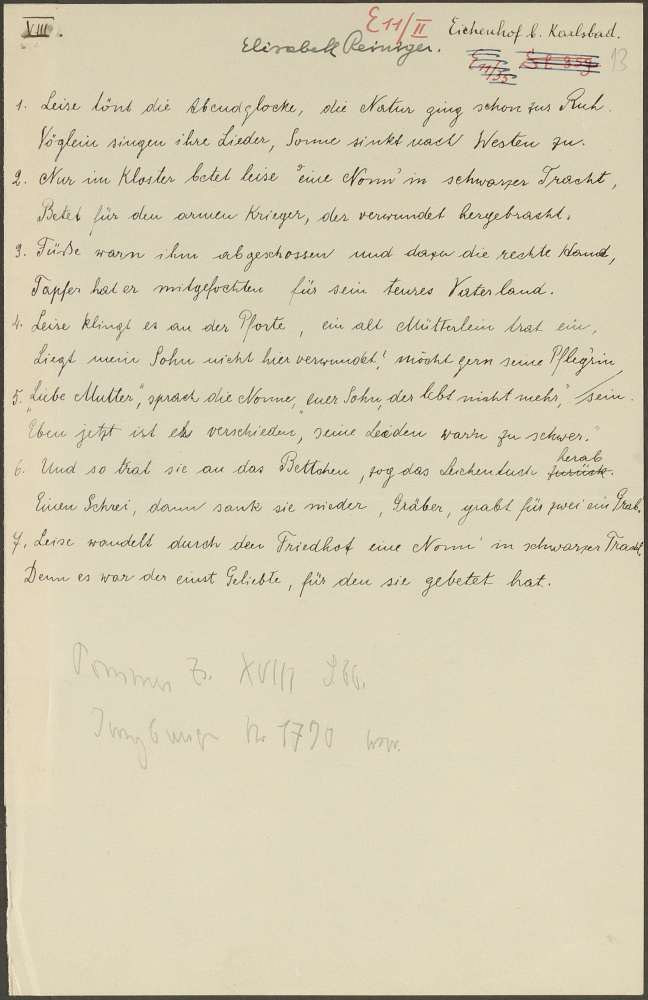 VIII.
E 11/II
Eichenhof b. Karlsbad.
Elisabeth Reiniger.
E 11/35
13
1. Leise tönt die Abendglocke, die Natur ging schon zur Ruh.
Vöglein singen ihre Lieder, Sonne sinkt nach Westen zu.
2. Nur im Kloster betet leise eine Nonn' in schwarzer Tracht,
Betet für den armen Krieger, der verwundet hergebracht.
3. Füße warn ihm abgeschossen und dazu die rechte Hand,
Tapfer hat er mitgefochten für sein teures Vaterland.
4. Leise klingt es an der Pforte, ein alt Mütterlein trat ein,
Liegt mein Sohn nicht hier verwundet? möcht gern seine Pfleg'rin
5. "Liebe Mutter", sprach die Nonne, "euer Sohn, der lebt nicht mehr, / sein.
Eben jetzt ist er verschieden, seine Leiden warn zu schwer."
herab
6. Und so trat sie an das Bettchen, zog das Leichentuch zurück.
Einen Schrei, dann sank sie nieder, Gräber, grabt für zwei ein Grab.
7. Leise wandelt durch den Friedhof eine Nonn' in schwarzer Tracht
Denn es war der einst Geliebte, für den sie gebetet hat.
XVIII
Nr 1790